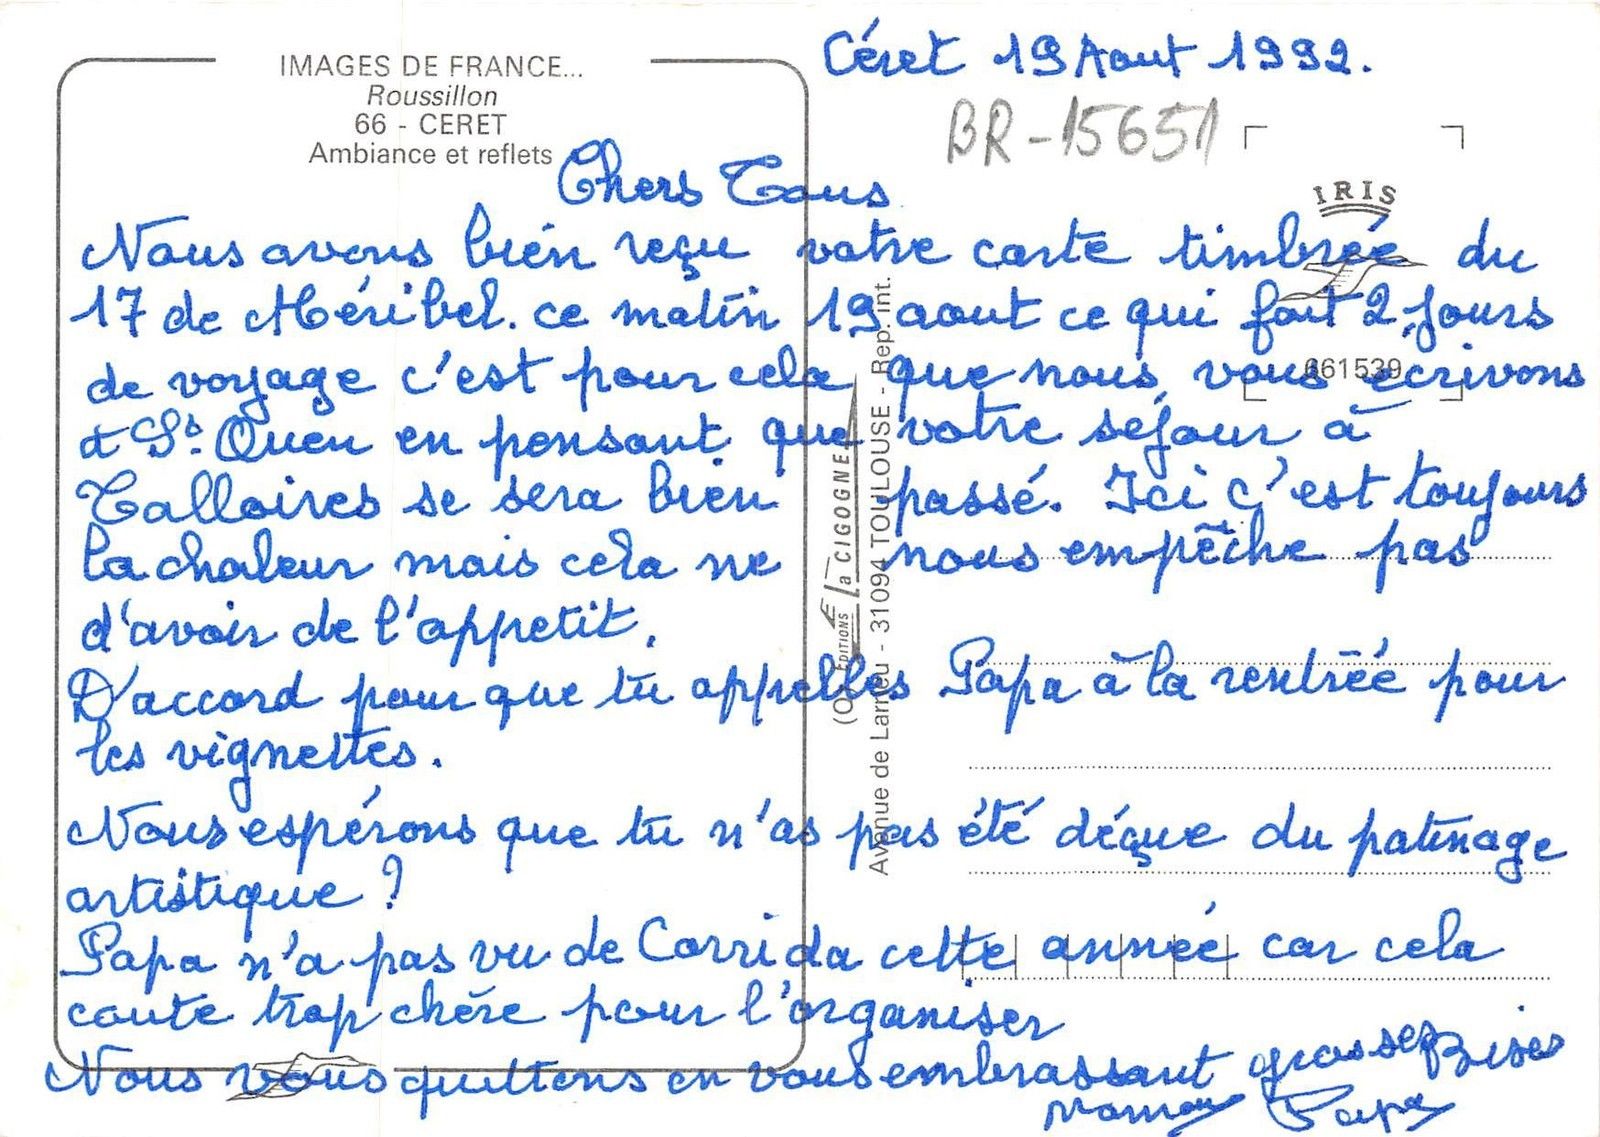 IMAGES DE FRANCE...
Roussillon
66 - CERET
Ambiance et reflets
Céret 19 Aout 1992.
BR-15651
IRIS
661539
Chers Tous
Nous avons bien reçu votre carte timbrée du
17 de Méribel. ce matin 19 aout ce qui fait 2 jours
de voyage c'est pour cela que nous vous écrivons
à St. Ouen en pensant que votre séjour à
Talloires se sera bien passé. Ici c'est toujours
la chaleur mais cela ne nous empêche pas
d'avoir de l'appetit.
D'accord pour que tu appelles Papa à la rentrée pour
les vignettes.
Nous espérons que tu n'as pas été déçue du patinage
artistique ?
Papa n'a pas vu de Corrida cette année car cela
coute trop chère pour l'organiser
Nous vous quittons en vous embrassant grosses Bises
Maman Papa
EDITIONS La CIGOGNE
Avenue de Larrieu - 31094 TOULOUSE - Rep. int.